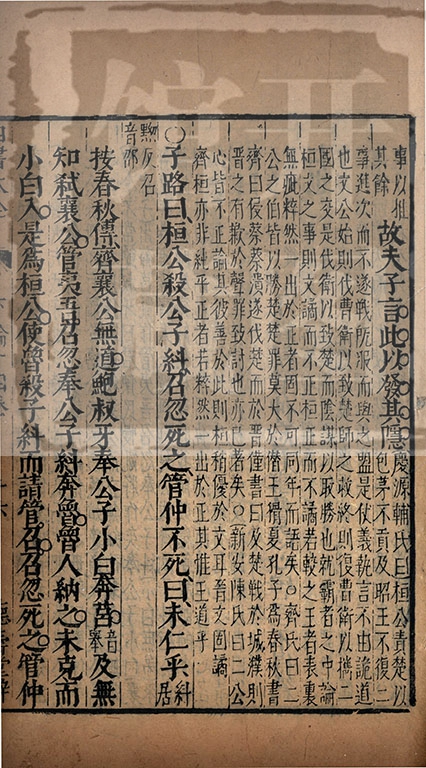 事以推
其餘
故夫子言此以發其隱
慶源輔氏曰桓公責楚以
包茅不貢及昭王不復二
事進次而不遂戰既服而與之盟是仗義執言不由詭道
也文公始則伐曹衛以致楚師之救終則復曹衛以攜二
國之交是伐衛以致楚而陰謀以取勝也就霸者之中論
桓文之事則文譎而不正桓正而不譎若較之王者表裏
無疵粹然一出於正者固不可同年而語矣○齊氏曰二
公之伯皆以勝楚楚罪莫大於僭王猾夏孔子為春秋書
齊曰侵蔡蔡潰遂伐楚而於晉僅書曰及楚戰於城濮則
晉之有歉於聲罪致討也亦已著矣○新安陳氏曰二公
心皆不正論其彼善於此則桓稍優於文耳晉文固譎
齊桓亦非純乎正者若粹然一出於正其推王道乎
○子路曰桓公殺公子糾召忽死之管仲不死曰未仁乎
糾居
黝反召
音邵
按春秋傳齊襄公無道鮑叔牙奉公子小白奔莒音舉及無
知弒襄公管夷吾召忽奉公子糾奔魯魯人納之未克而
小白入是為桓公使魯殺子糾而請管召召忽死之管仲